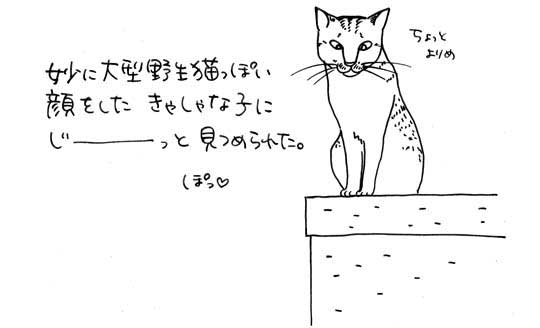 妙に大型野生猫っぽい
顔をした きゃしゃな子に
じ———っと 見つめられた。
ぽっ♡
ちょっと
よりめ